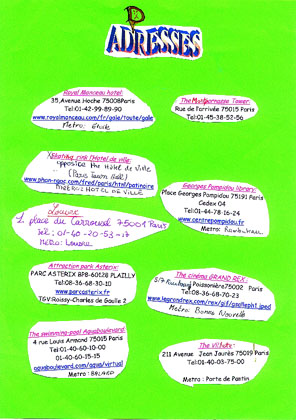 ADRESSES
Royal Monceau hotel:
35,Avenue Hoche 75008Paris
Tel:01-42-99-89-90
www.royalmonceau.com/fr/gaie/toute/gaie
Metro: Etoile
The Montparnasse Tower:
Rue de l'arrivée 75015 Paris
Tel:01-45-38-52-56
Skating rink l'Hotel de ville:
opposite the Hôtel de Ville
(Paris Town Hall)
METRO: HOTEL DE VILLE
Georges Pompidou library:
Place Georges Pompidou 75191 Paris
Cedex 04
Tel:01-44-78-16-24
www.centrepompidou.fr
Metro: Rambuteau
Louvre
1. place du Carrousel 75001 Paris
Tél: 01-40-20-53-17
Métro: Louvre
Attraction park Asterix:
PARC ASTERIX BP8-60128 PLAILLY
Tel:08-36-68-30-10
www.parcasterix.fr
TGV:Roissy-Charles de Gaulle 2
The cinéma GRAND REX:
Poissonnière75002 Paris
Tel:08-36-68-70-23
Metro: Bonne Nouvelle
The swimming-pool Aquaboulevard:
4 rue Louis Armand 75015 Paris
Tel:01-40-60-10-00
01-40-60-15-15
aquaboulevard.com/aqua/virtual
Metro : BALARD
The Villette:
211 Avenue Jean Jaurès 75019 Paris
Tel:01-40-03-75-00
Metro : Porte de Pantin